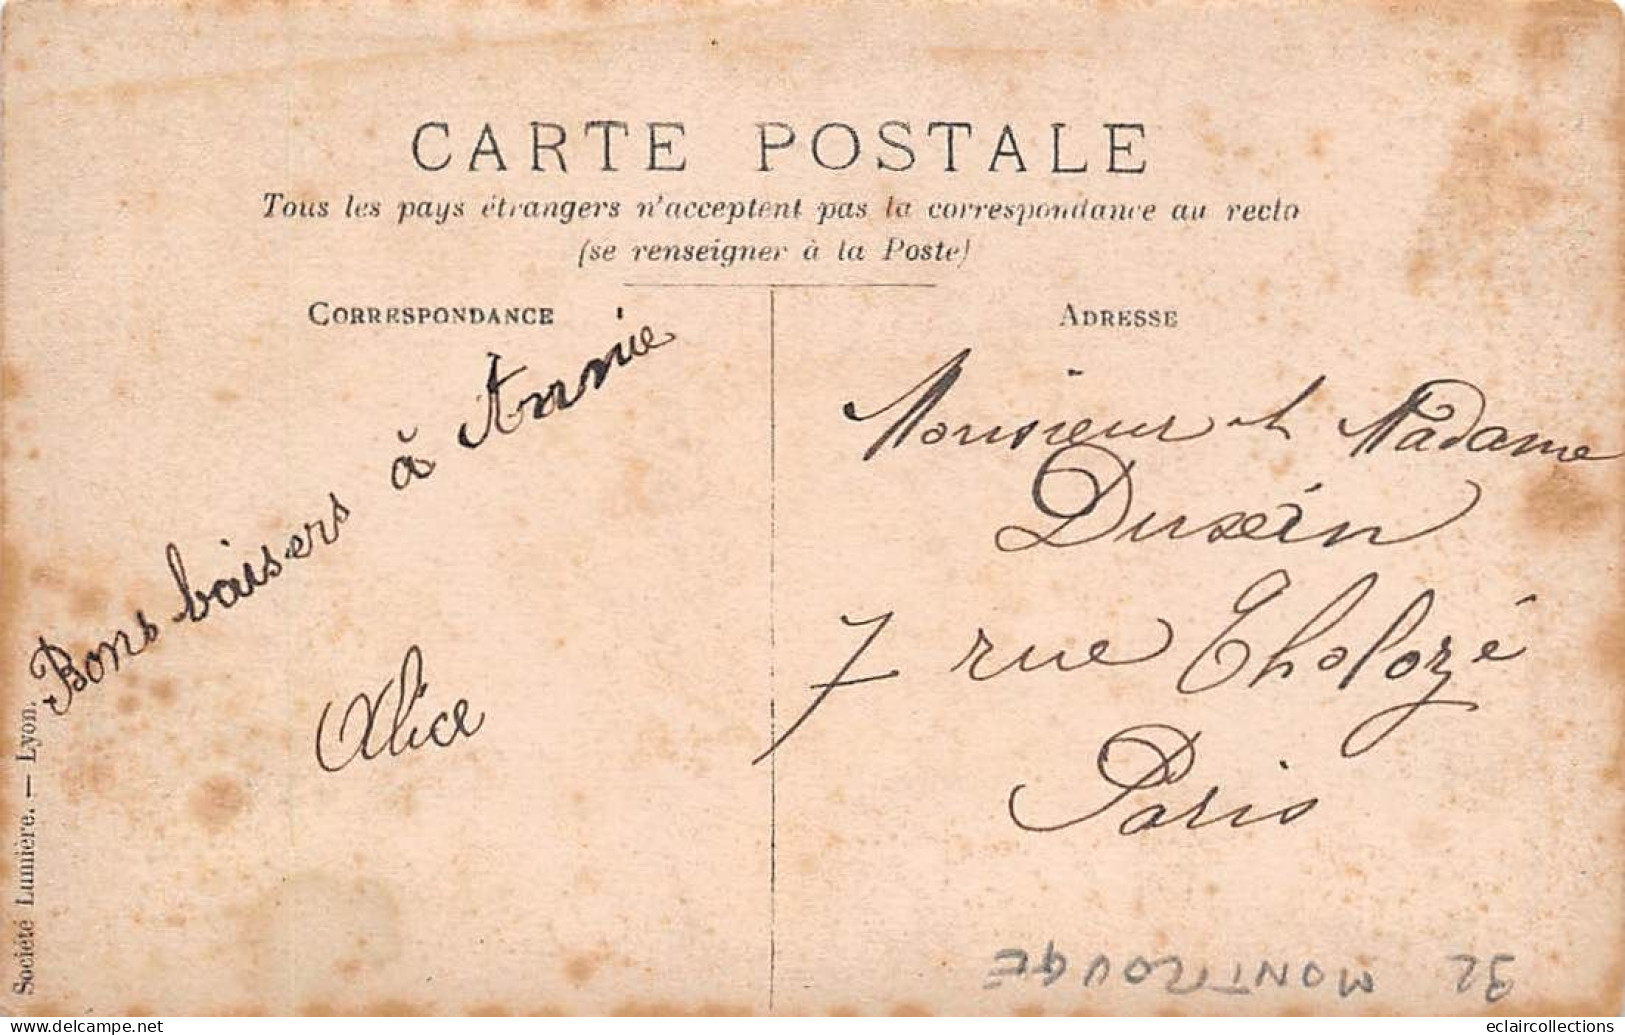 CARTE POSTALE
Tous les pays étrangers n'acceptent pas la correspondance au recto
(se renseigner à la Poste)
CORRESPONDANCE
ADRESSE
Bons baisers à Annie
Alice
Monsieur et Madame
7 rue Tholozé
Paris
Société Lumière. — Lyon.
92 MONTROUGE
eclaircollections